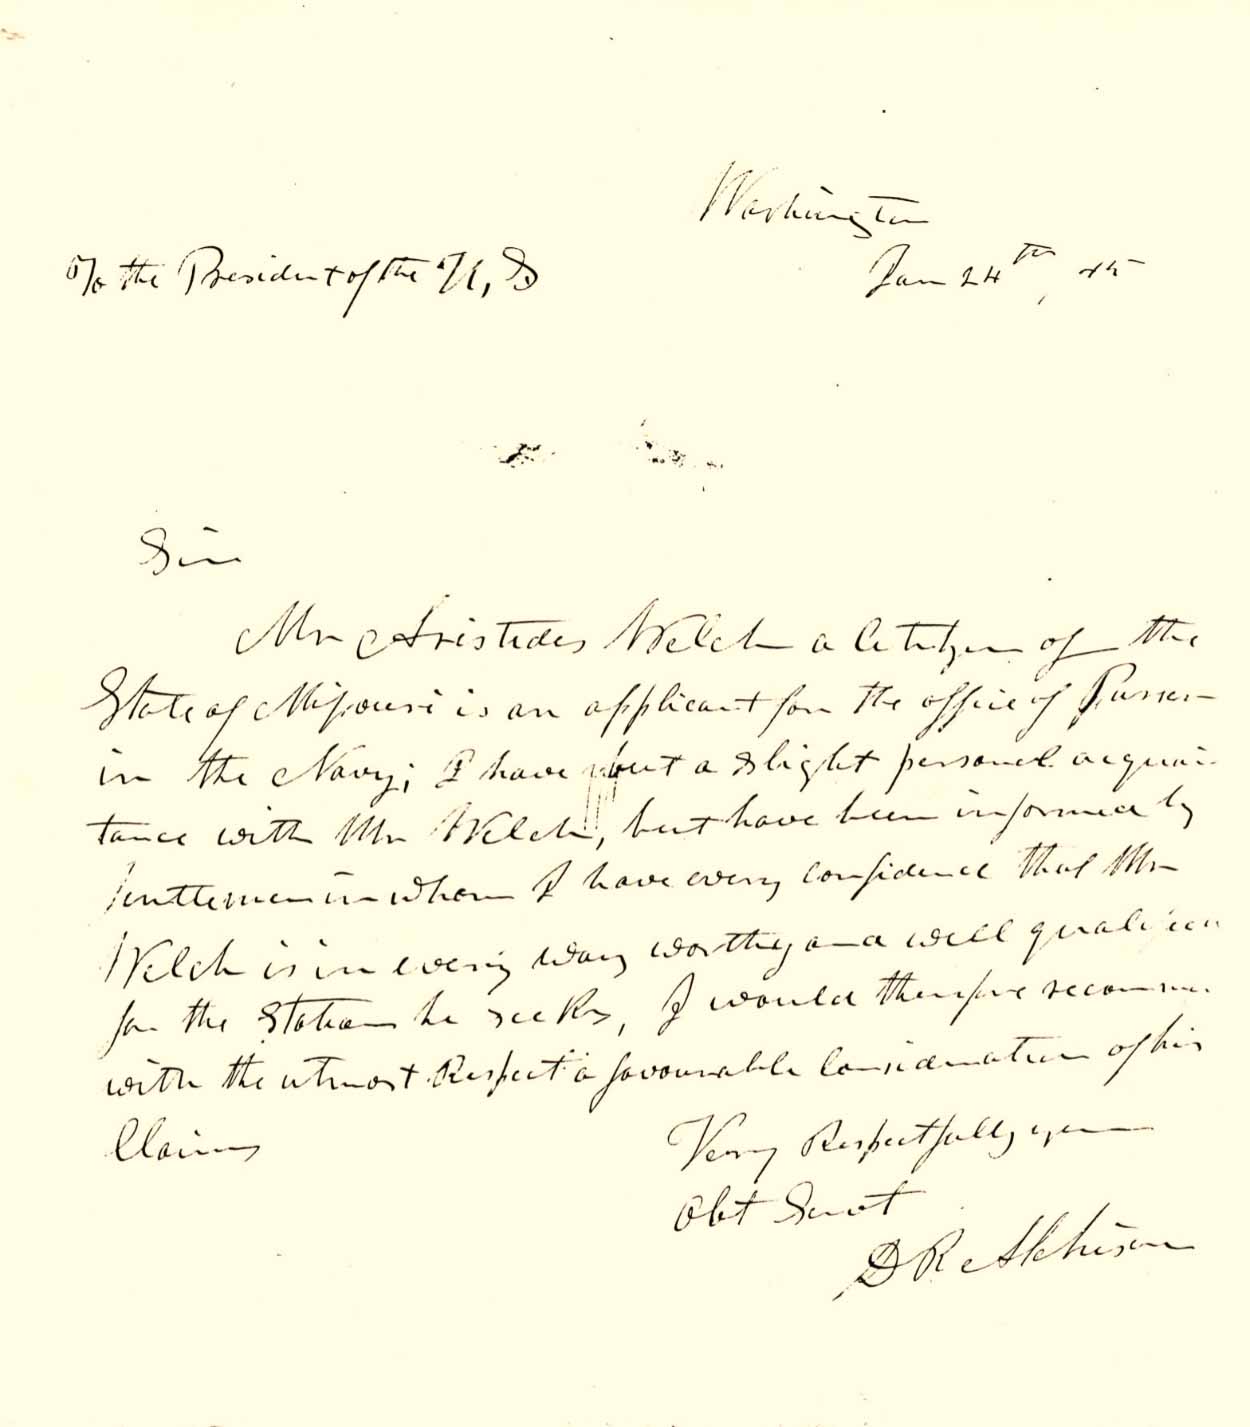 Washington
To the President of the U, S
Jan 24th, 45
Sir
Mr Aristides Welch a Citizen of the
State of Missouri is an applicant for the office of Purser
in the Navy; I have but a slight personal acquain
tance with Mr Welch, but have been informed by
Gentlemen in whom I have every confidence that Mr
Welch is in every way worthy and well qualified
for the Station he seeks, I would therefore recomme
with the utmost Respect a favourable Consideration of his
Claims
Very Respectfully your
Obt Servt
D R Atchison